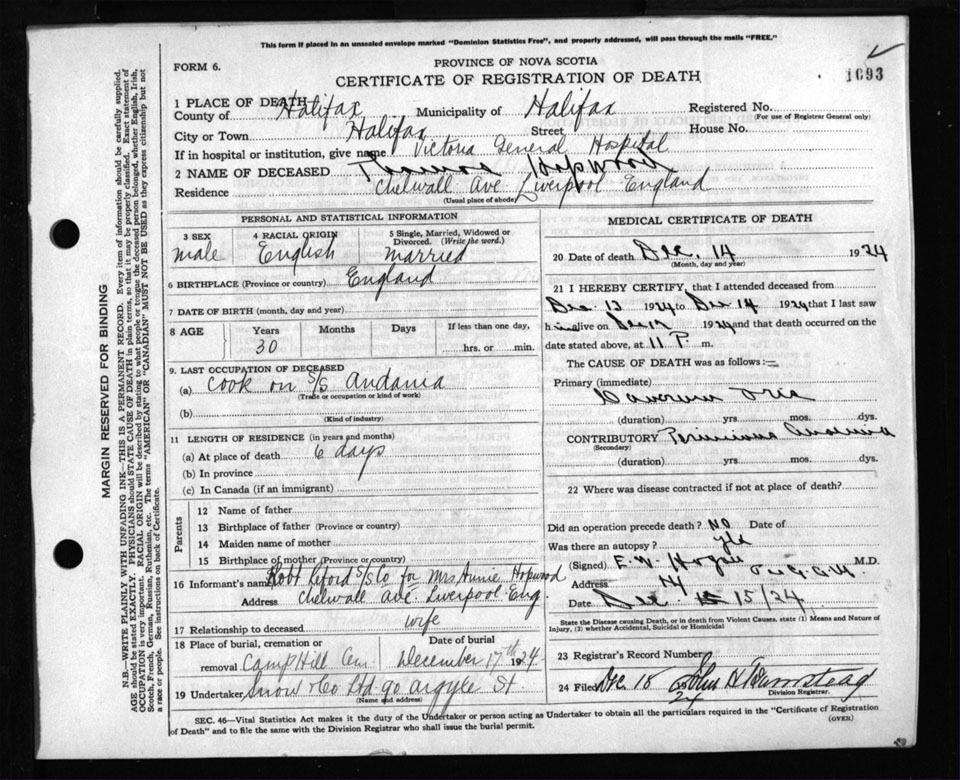 This form if placed in an unsealed envelope marked "Dominion Statistics Free", and properly addressed, will pass through the mails "FREE."
FORM 6.
PROVINCE OF NOVA SCOTIA
CERTIFICATE OF REGISTRATION OF DEATH
1693
1 PLACE OF DEATH
County of Halifax Municipality of Halifax Registered No.
(For use of Registrar General only)
City or Town Halifax Street House No.
If in hospital or institution, give name Victoria General Hospital
2 NAME OF DECEASED Hopwood
Residence Chelwall Ave Liverpool England
(Usual place of abode)
PERSONAL AND STATISTICAL INFORMATION
3 SEX male
4 RACIAL ORIGIN English
5 Single, Married, Widowed or Divorced. (Write the word.) married
6 BIRTHPLACE (Province or country) England
7 DATE OF BIRTH (month, day and year)
8 AGE Years Months Days If less than one day,
30 hrs. or min.
9. LAST OCCUPATION OF DECEASED
(a) Cook on S/S Andania
(Trade or occupation or kind of work)
(b)
(Kind of industry)
11 LENGTH OF RESIDENCE (in years and months)
(a) At place of death 6 days
(b) In province
(c) In Canada (if an immigrant)
Parents
12 Name of father
13 Birthplace of father (Province or country)
14 Maiden name of mother
15 Birthplace of mother (Province or country)
16 Informant's name Robt Reford S/S Co for Mrs. Annie Hopwood
Address Chelwall Ave Liverpool Eng.
17 Relationship to deceased wife
18 Place of burial, cremation or removal Camp Hill Cem
Date of burial December 17th 1924
19 Undertaker Snow & Co Ltd 90 Argyle St.
(Name and address)
MEDICAL CERTIFICATE OF DEATH
20 Date of death Dec. 14 1924
(Month, day and year)
21 I HEREBY CERTIFY, that I attended deceased from
Dec. 13 1924 to Dec 14 1924 that I last saw
him alive on Dec 1924 and that death occurred on the
date stated above, at 11 P. m.
The CAUSE OF DEATH was as follows:—
Primary (immediate)
(duration) yrs. mos. dys.
CONTRIBUTORY Pernicious Anaemia
(Secondary)
(duration) yrs. mos. dys.
22 Where was disease contracted if not at place of death?
Did an operation precede death? NO Date of
Was there an autopsy? yes
(Signed) E. W. M.D.
Address
Date Dec. 15/24
State the Disease causing Death, or in death from Violent Causes, state (1) Means and Nature of Injury, (2) whether Accidental, Suicidal or Homicidal
23 Registrar's Record Number
24 Filed Dec. 18 24 John
Division Registrar.
SEC. 46—Vital Statistics Act makes it the duty of the Undertaker or person acting as Undertaker to obtain all the particulars required in the "Certificate of Registration
of Death" and to file the same with the Division Registrar who shall issue the burial permit.
(OVER)
MARGIN RESERVED FOR BINDING
N.B.—WRITE PLAINLY WITH UNFADING INK—THIS IS A PERMANENT RECORD. Every item of information should be carefully supplied.
AGE should be stated EXACTLY. PHYSICIANS should STATE CAUSE OF DEATH in plain terms, so that it may be properly classified. Exact statement of
OCCUPATION is very important. RACIAL ORIGIN will be described by stating to what people or tongue the deceased person belonged, whether English, Irish,
Scotch, French, German, Russian, Ruthenian, etc. The terms "AMERICAN" OR "CANADIAN" MUST NOT BE USED as they express citizenship but not
a race or people. See instructions on back of Certificate.